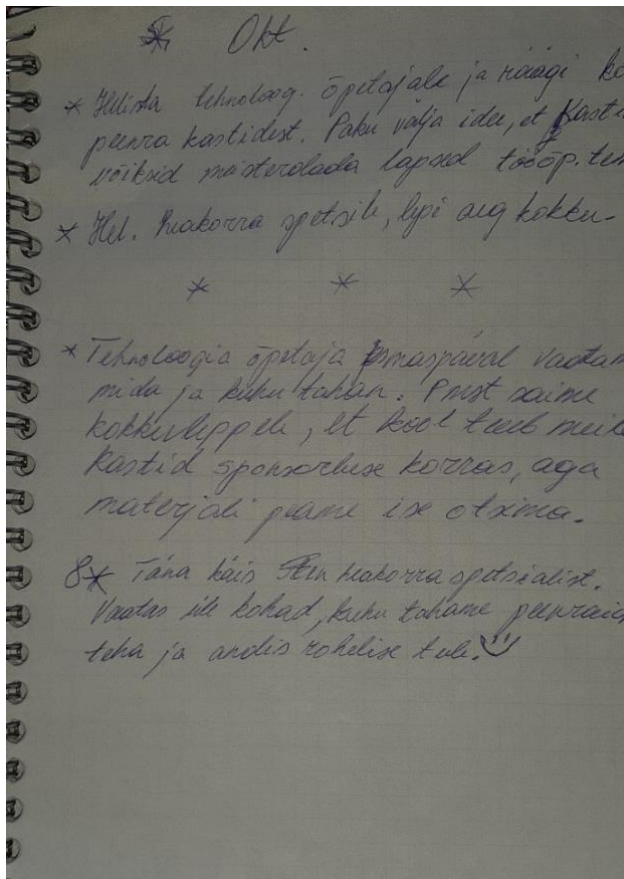 5. Okt.
* Helista tehnoloog. õpetajale ja räägi
peenra kastidest. Paku välja idee, et kast
võiksid meisterdada lapsed tööõp.
* Hel. heakorra spetsile, lepi aeg kokku.
* * *
* Tehnoloogia õpetaja esmaspäeval vaatam
mida ja kuhu tahan. Pmst saime
kokkuleppele, et kool teeb meile
kastid sponsorluse korras, aga
materjali peame ise otsima.
8* Täna käis heakorra spetsialist.
Vaatas üle kohad, kuhu tahame peenraid
teha ja andis rohelise tule.